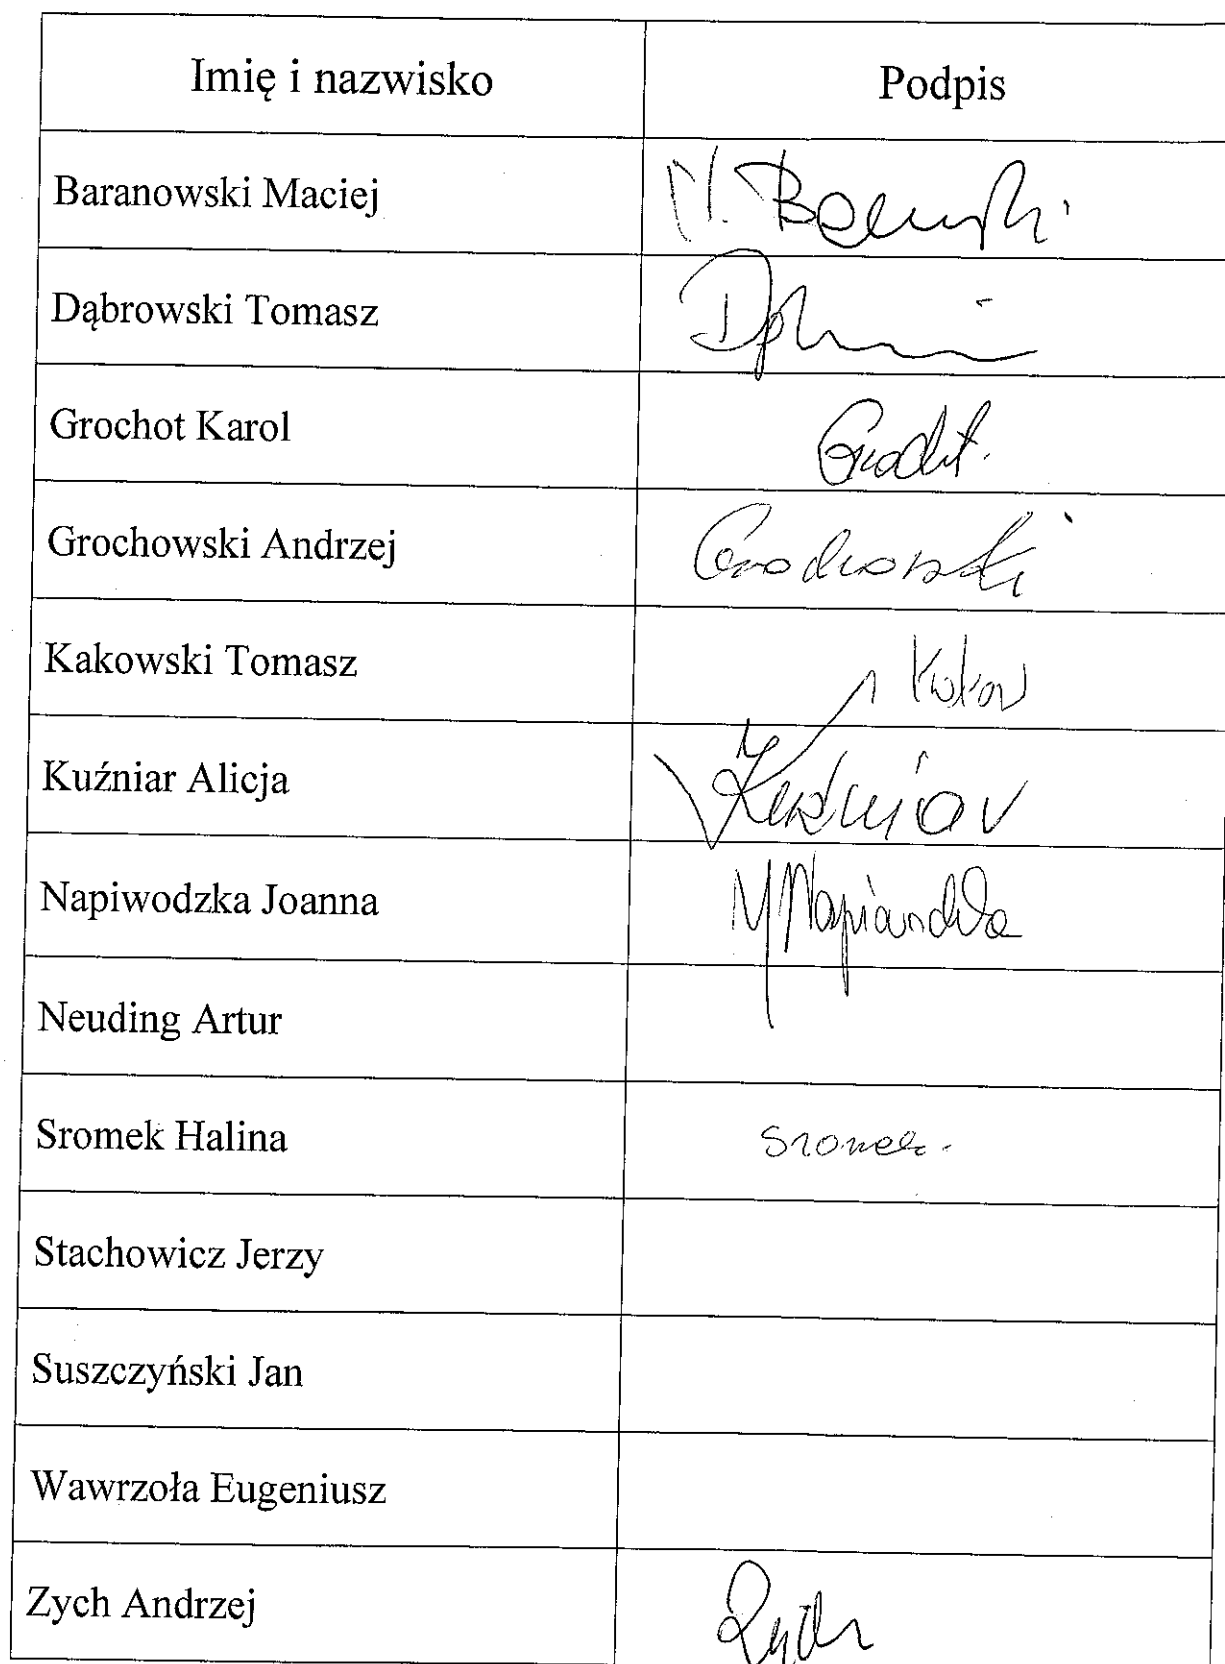 Imię i nazwisko Podpis
Baranowski Maciej M.
Dąbrowski Tomasz
Grochot Karol Grochot.
Grochowski Andrzej Grochowski
Kakowski Tomasz
Kuźniar Alicja Kuźniar
Napiwodzka Joanna
Neuding Artur
Sromek Halina Sromek.
Stachowicz Jerzy
Suszczyński Jan
Wawrzoła Eugeniusz
Zych Andrzej Zych